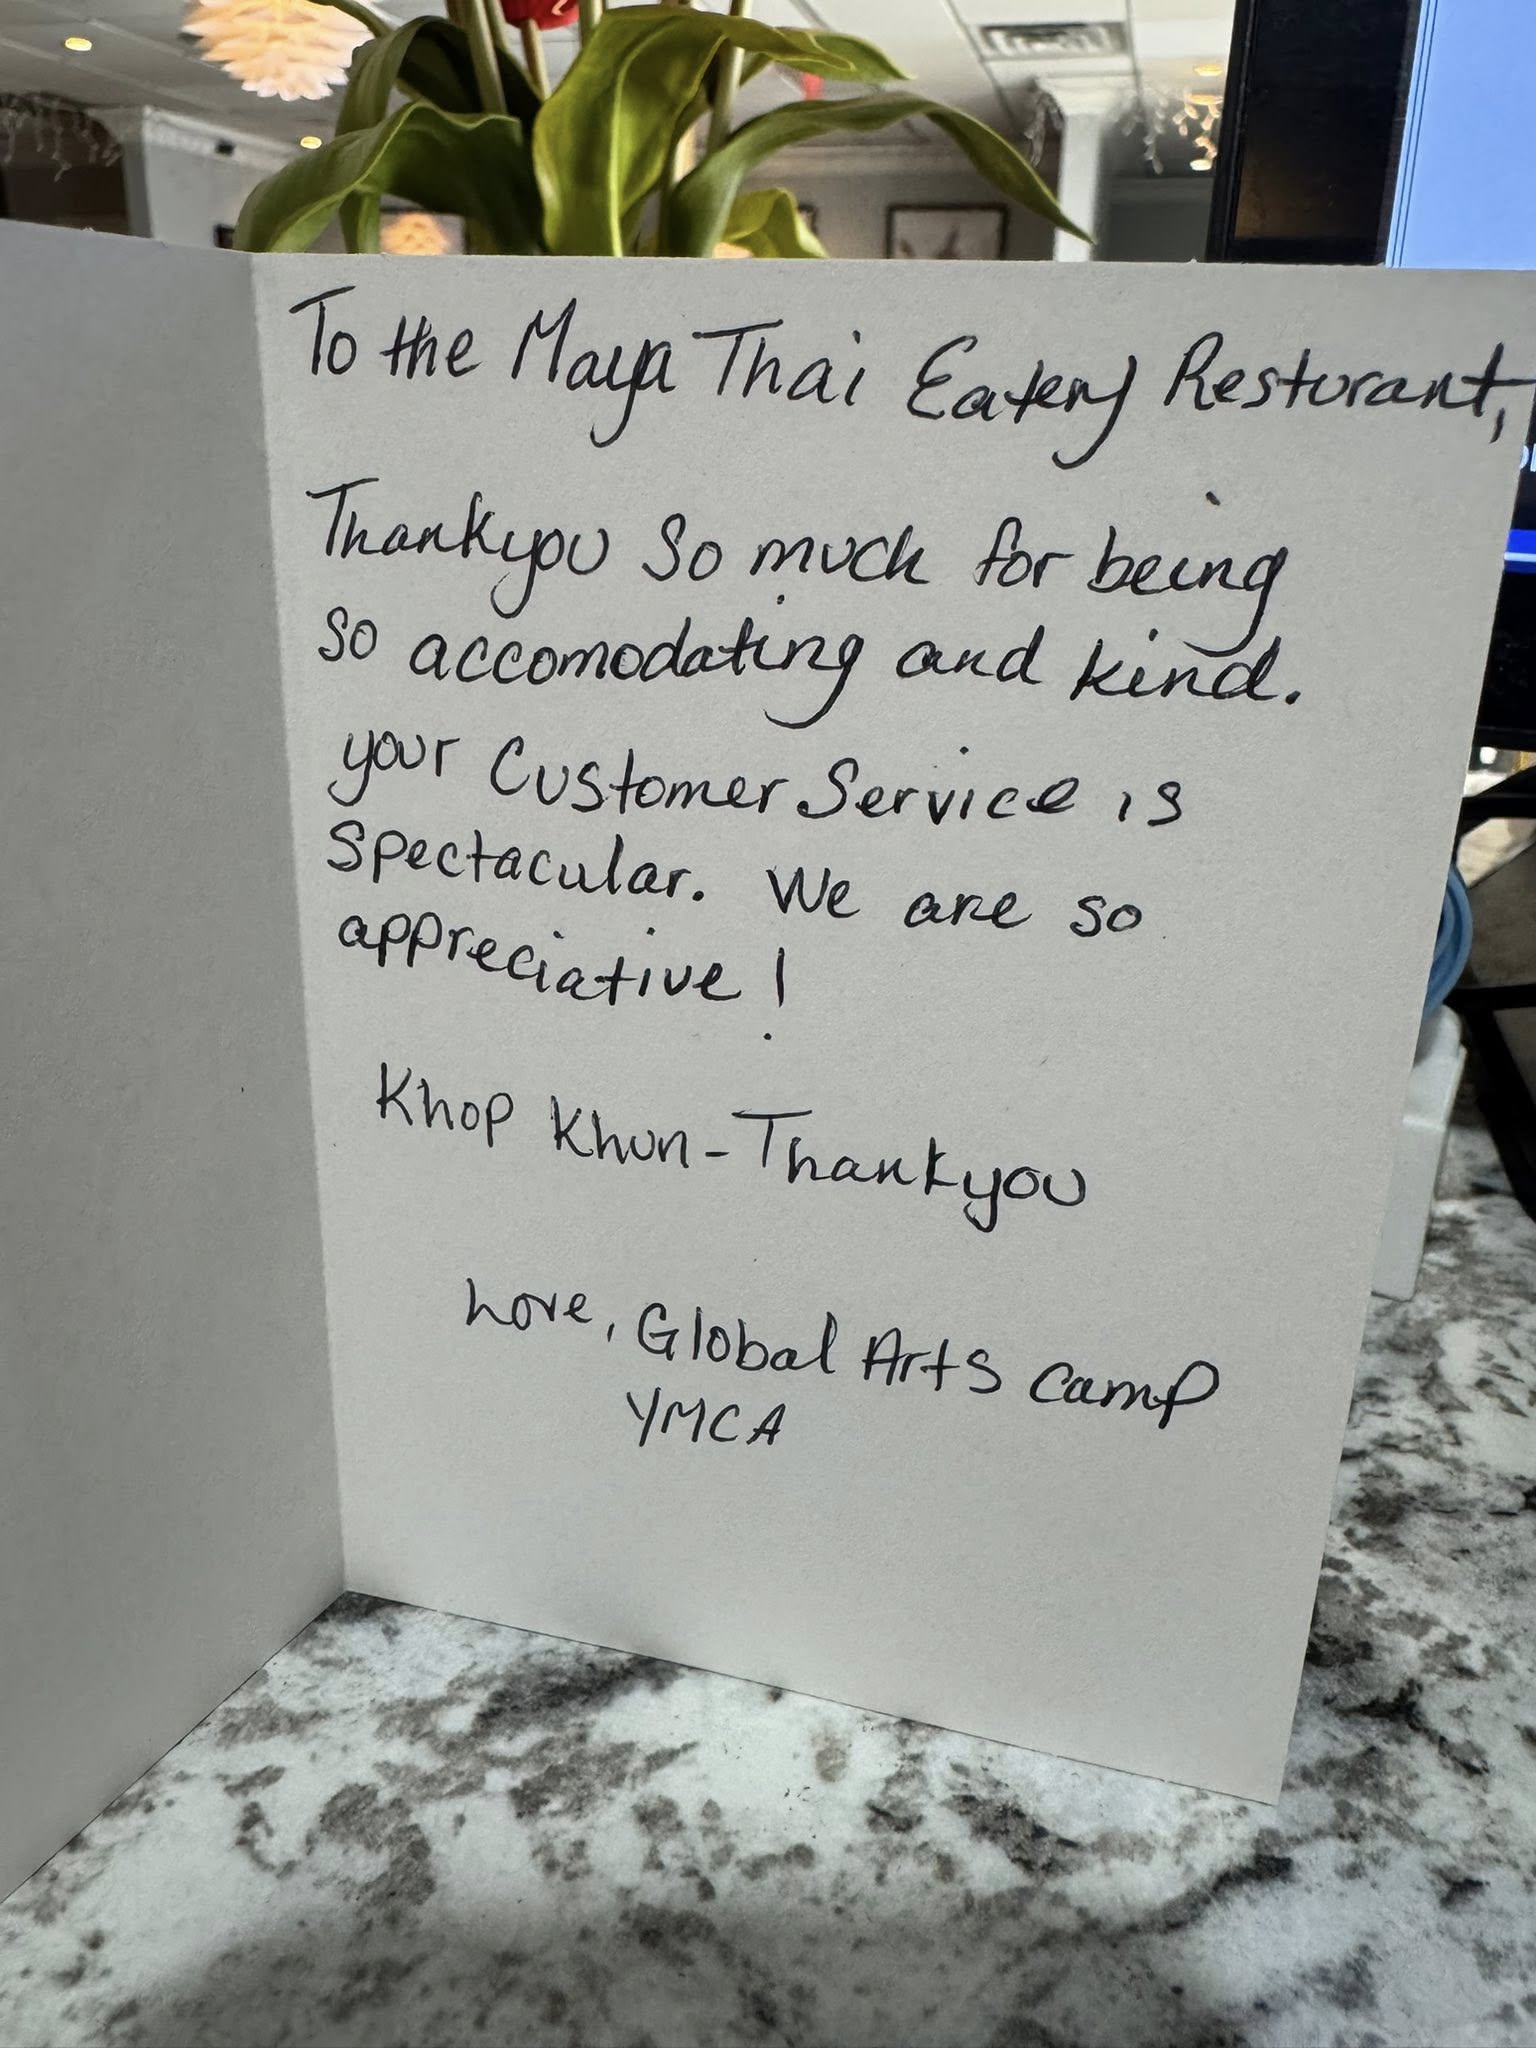 To the Maya Thai Eatery Resturant,
Thankyou so much for being
so accomodating and kind.
your Customer Service is
spectacular. We are so
appreciative!
Khop Khun - Thankyou
Love, Global Arts camp
YMCA